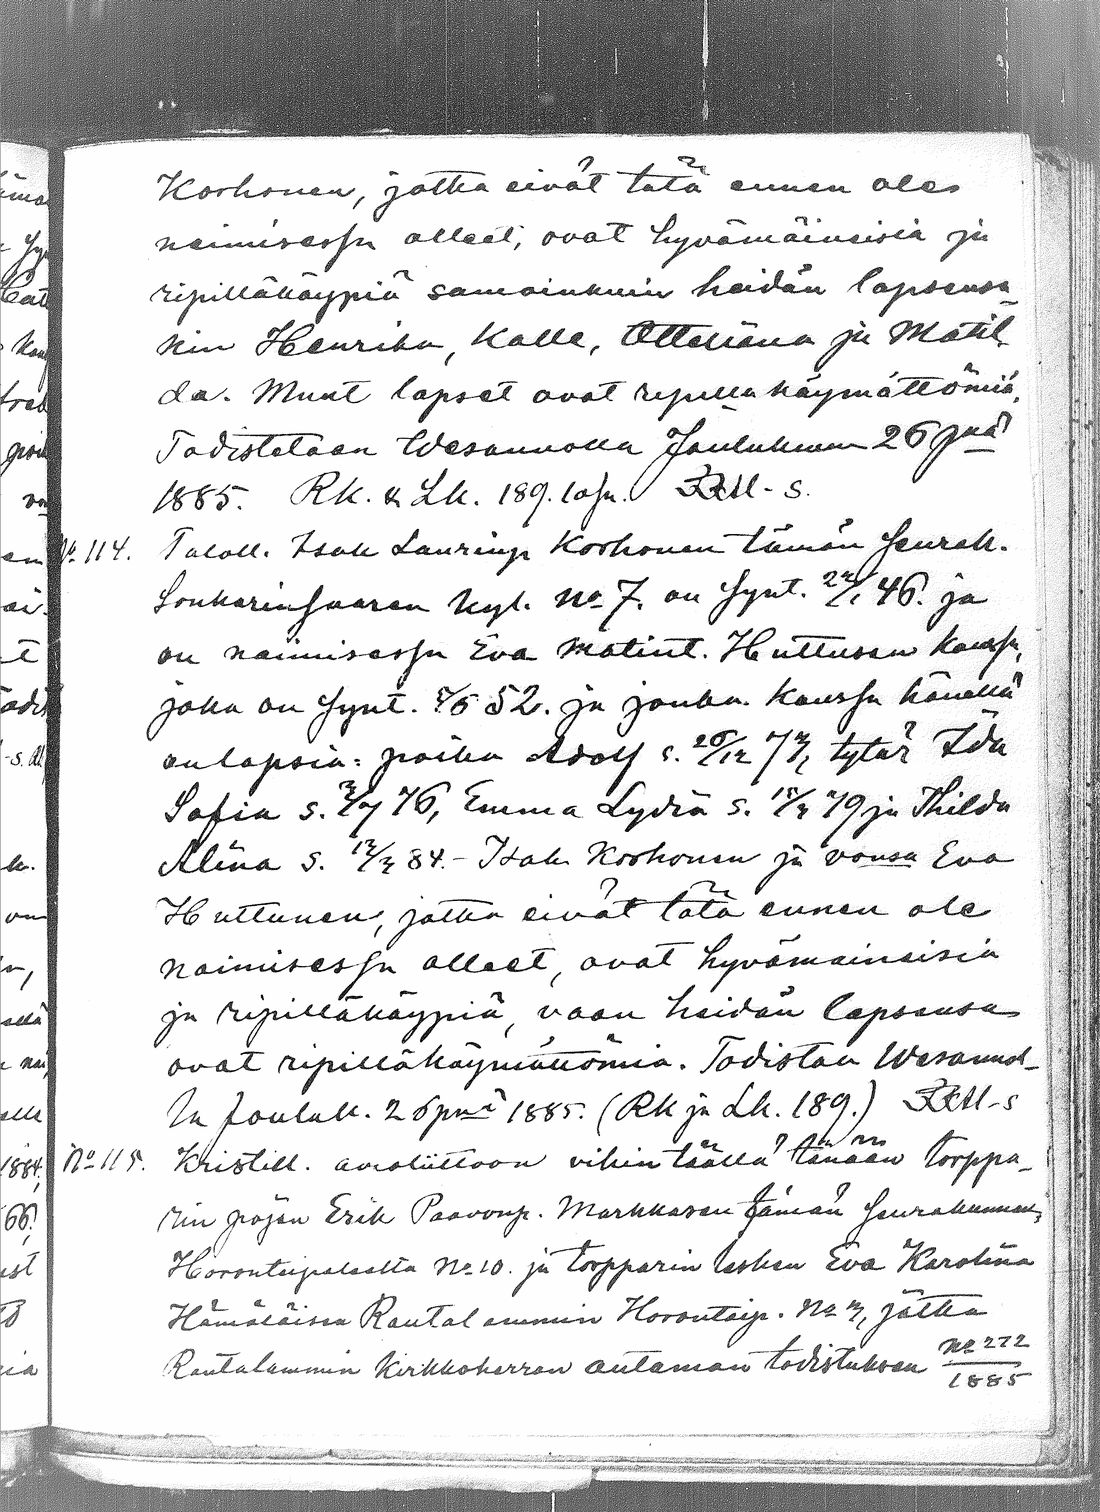 Korhonen, jotka eivät tätä ennen ole
naimisessa olleet, ovat hyvämaineisia ja
ripilläkäypiä samoinkuin heidän lapsensa-
kin Henrika, Kalle, Ottiliana ja Matil-
da. Muut lapset ovat ripillä käymättömiä.
Todistetaan Wesannolla Joulukuun 26 pnä
1885. RK. & Lk. 189. 1 osa.
No 114. Taloll. Isak Laurinp. Korhonen tämän seurak.
Sonkarinsaaren kyl. No 7. on synt. 22/1 46. ja
on naimisessa Eva Matint. Huttusen kanssa,
joka on synt. 52. ja jonka kanssa hänellä
on lapsia: poika Adolf s. 26/12 73, tytär Ida
Sofia s. 3/7 76, Emma Lydia s. 15/3 79 ja Thilda
Alina s. 12/3 84. - Isak Korhonen ja vaimo Eva
Huttunen, jotka eivät tätä ennen ole
naimisessa olleet, ovat hyvämaineisia
ja ripilläkäypiä, vaan heidän lapsensa
ovat ripilläkäymättömiä. Todistan Wesannol-
la Jouluk. 26 pnä 1885. (RK ja Lk. 189.)
No 115. Kristill. avioliittoon vihin täällä tänään torppa-
rin pojan Erik Paavonp. Markkasen tämän seurakunnan,
Horontaipaleelta No 10. ja torpparin lesken Eva Karolina
Hämäläisen Rautalammin Horontaip. No 3, jotka
Rautalammin kirkkoherran antaman todistuksen No 272
1885